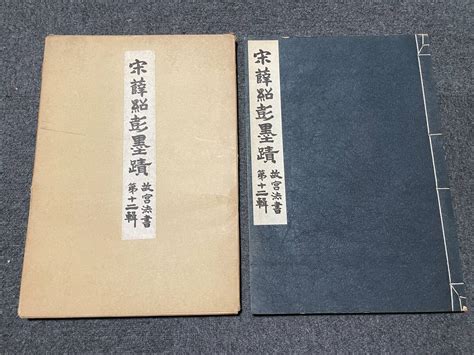 宋薛紹彭墨蹟
故宮法書
第十二輯
宋薛紹彭墨蹟
故宮法書
第十二輯